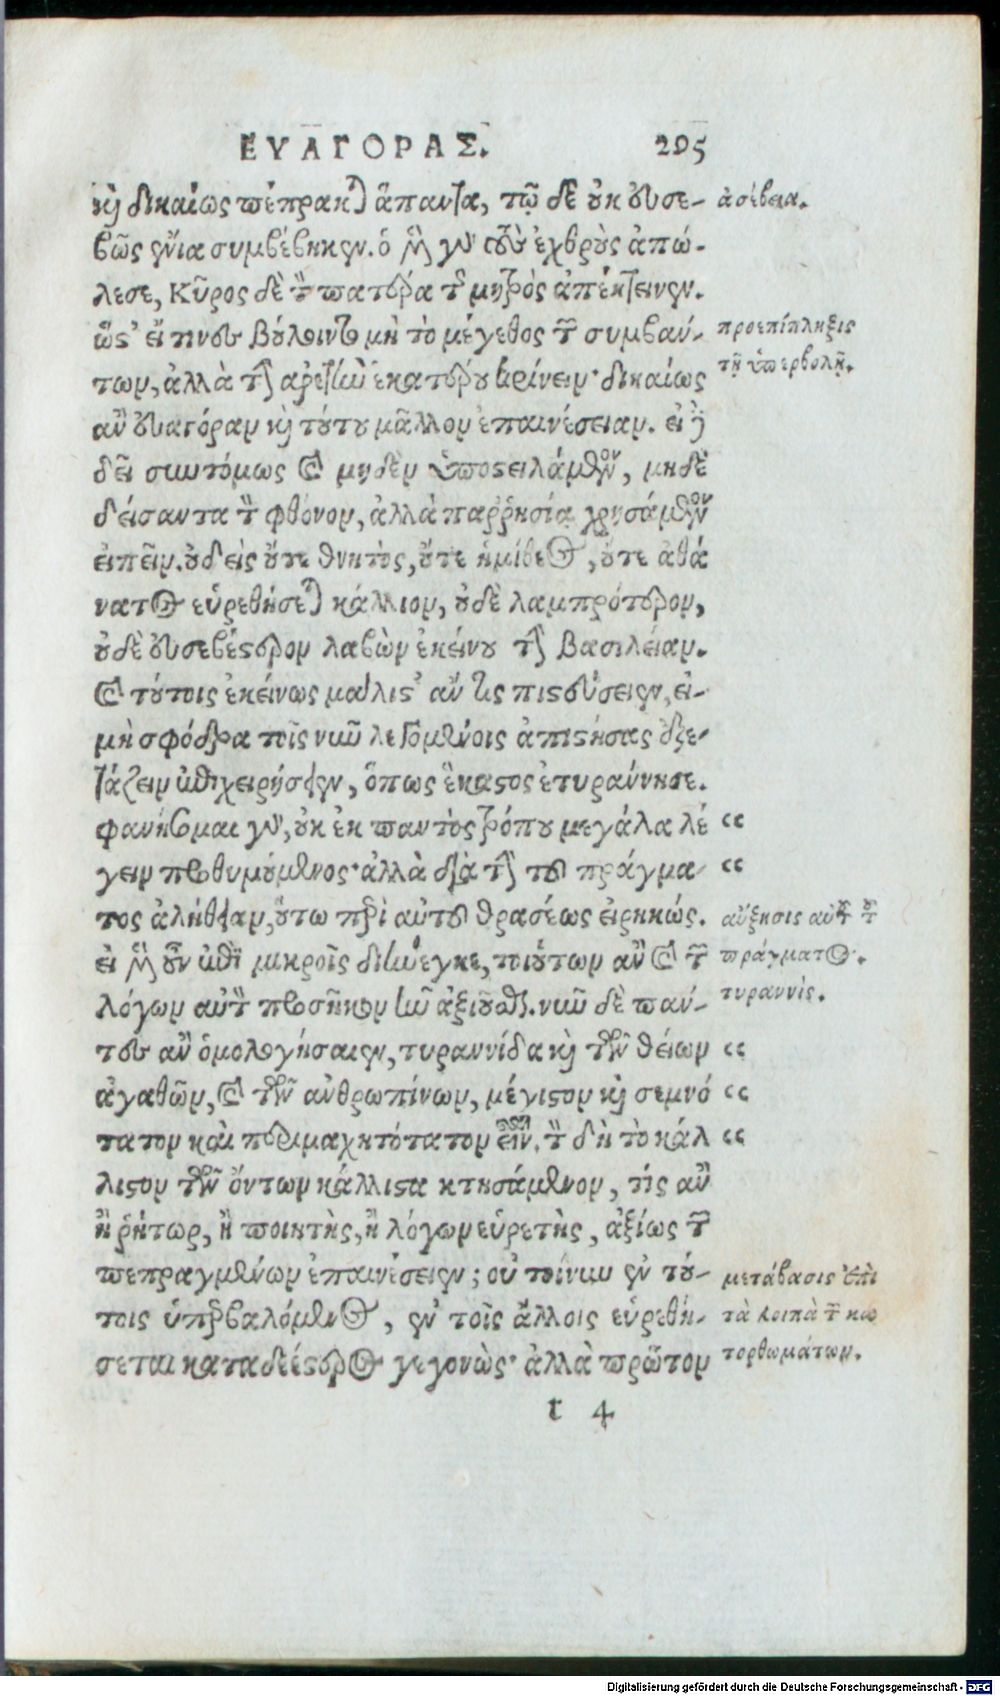 ΕΥΑΓΟΡΑΣ. 295
καὶ δικαίως πέπρακται ἅπαντα, τῷ δὲ οὐκ εὐσε-
βῶς ἔνια συμβέβηκεν. ὁ μὲν γὰρ τοὺς ἐχθροὺς ἀπώ-
λεσε, Κῦρος δὲ τὸν πατέρα τῆς μητρὸς ἀπέκτεινεν.
ὥστ' εἴ τινες βούλοιντο μὴ τὸ μέγεθος τῶν συμβάν-
των, ἀλλὰ τὴν ἀρετὴν ἑκατέρου κρίνειν· δικαίως
ἂν εὐαγόραν καὶ τούτου μᾶλλον ἐπαινέσειαν. εἰ δὲ
δεῖ συντόμως καὶ μηδὲν ὑποστειλάμενον, μηδὲ
δείσαντα τὸν φθόνον, ἀλλὰ παῤῥησίᾳ χρησάμενον
εἰπεῖν. οὐδεὶς οὔτε θνητὸς, οὔτε ἡμίθεος, οὔτε ἀθά
νατος εὑρεθήσεται κάλλιον, οὐδὲ λαμπρότερον,
οὐδὲ εὐσεβέστερον λαβὼν ἐκείνου τὴν βασιλείαν.
καὶ τούτοις ἐκείνως μάλιστ' ἄν τις πιστεύσειεν, εἰ
μὴ σφόδρα τοῖς νῦν λεγομένοις ἀπιστήσας ἐξε-
τάζειν ἐπιχειρήσειεν, ὅπως ἕκαστος ἐτυράννησε.
φανήσομαι γὰρ, οὐκ ἐκ παντὸς τρόπου μεγάλα λέ
γειν προθυμούμενος· ἀλλὰ διὰ τὴν τοῦ πράγμα
τος ἀλήθειαν, οὕτω περὶ αὐτοῦ θρασέως εἰρηκώς.
εἰ μὲν οὖν ἐπὶ μικροῖς διήνεγκε, τοιούτων ἂν καὶ τῶν
λόγων αὐτὸν προσῆκον ἦν ἀξιοῦσθαι. νῦν δὲ πάν-
τες ἂν ὁμολογήσαιεν, τυραννίδα καὶ τῶν θείων
ἀγαθῶν, καὶ τῶν ἀνθρωπίνων, μέγιστον καὶ σεμνό
τατον καὶ περιμαχητότατον εἶναι. τὸν δὴ τὸ κάλ
λιστον τῶν ὄντων κάλλιστα κτησάμενον, τίς ἂν
ἢ ῥήτωρ, ἢ ποιητὴς, ἢ λόγων εὑρετὴς, ἀξίως τῶν
πεπραγμένων ἐπαινέσειεν; οὐ τοίνυν ἐν τού-
τοις ὑπερβαλόμενος, ἐν τοῖς ἄλλοις εὑρεθή-
σεται καταδεέστερος γεγονώς· ἀλλὰ πρῶτον
t 4
ἀσέβεια.
προεπίπληξις
τῇ ὑπερβολῇ.
“
“
αὔξησις αὐτοῦ τοῦ
πράγματος.
τυραννίς.
“
“
“
μετάβασις ἐπὶ
τὰ λοιπὰ τῶν κα
τορθωμάτων.
Digitalisierung gefördert durch die Deutsche Forschungsgemeinschaft - DFG